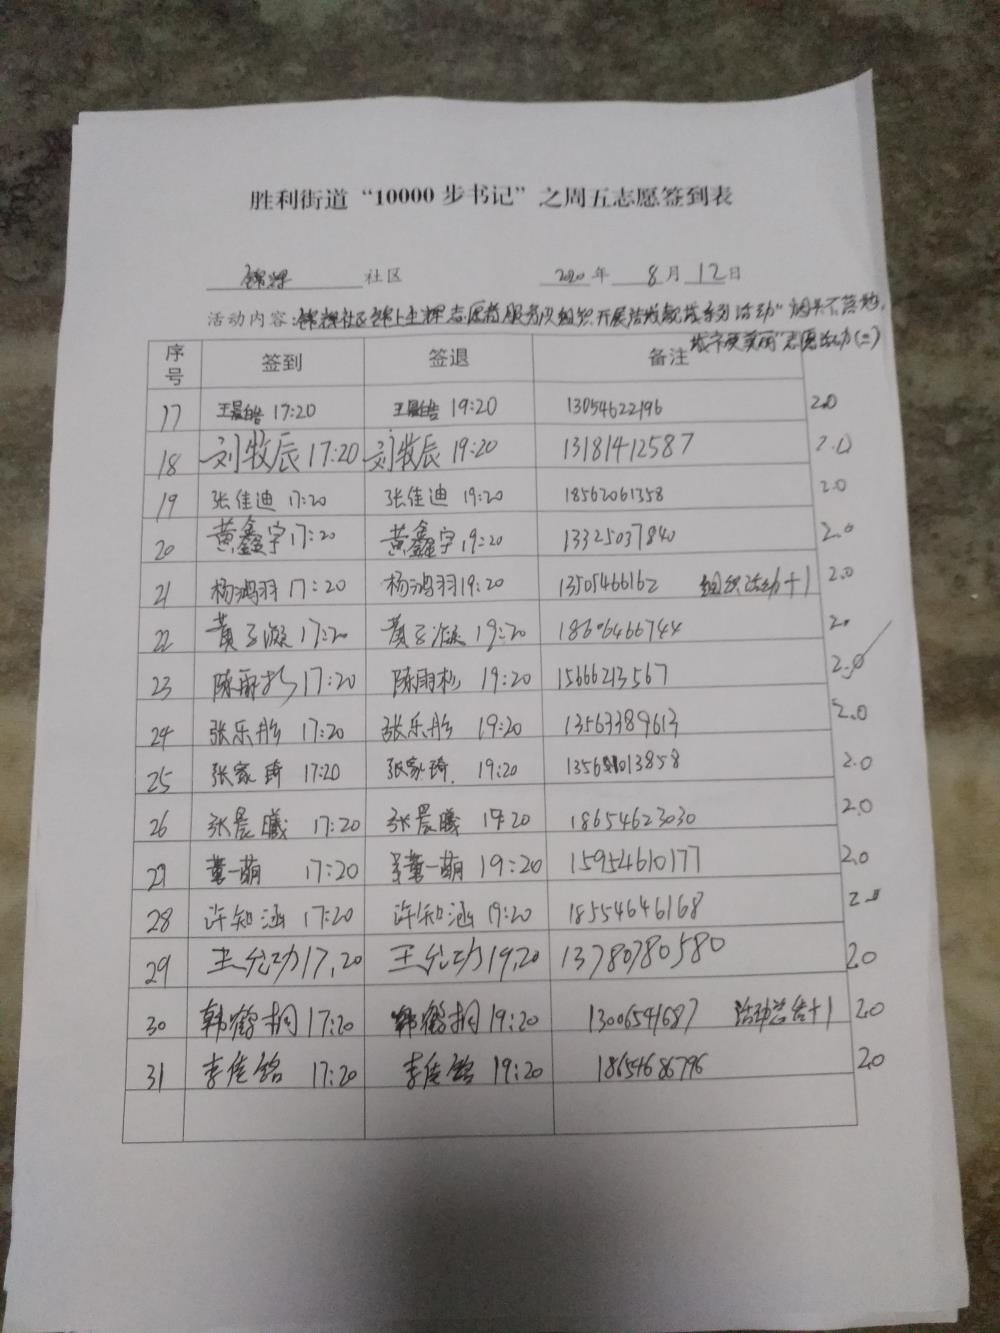 胜利街道“10000步书记”之周五志愿签到表
锦辉 社区 2020年 8月 12日
活动内容：锦辉社区锦上生辉志愿者服务队组织开展 系列活动“烟头不落地，
城市更美丽”志愿活动(二)
序号 签到 签退 备注
17 王晨皓 17:20 王晨皓 19:20 13054622196 2.0
18 刘牧辰 17:20 刘牧辰 19:20 13181412587 2.0
19 张佳迪 17:20 张佳迪 19:20 18562061358 2.0
20 黄鑫宇 17:20 黄鑫宇 19:20 13325037840 2.0
21 杨鸿羽 17:20 杨鸿羽 19:20 13505466162 组织活动+1 2.0
22 黄子凝 17:20 黄子凝 19:20 18606466744 2.
23 陈雨杉 17:20 陈雨杉 19:20 15666213567 2.0
24 张乐彤 17:20 张乐彤 19:20 13563389613 2.0
25 张家琦 17:20 张家琦. 19:20 2.0
26 张晨曦 17:20 张晨曦 19:20 18654623030 2.0
27 董一萌 17:20 董一萌 19:20 15954610177 2.0
28 许知涵 17:20 许知涵 19:20 18554646168
29 王允功 17,20 王允功 19,20 13780780580 2.0
30 韩鹤桐 17:20 韩鹤桐 19:20 13006541687 活动总结+1 2.0
31 李佳铭 17:20 李佳铭 19:20 18654686796 2.0